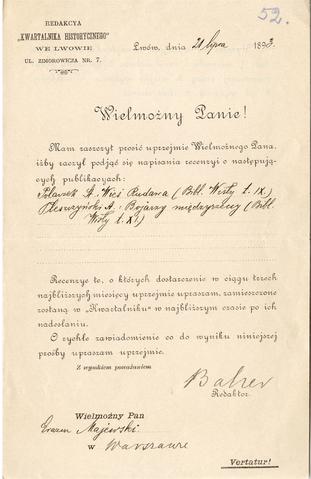 52.
REDAKCYA
"KWARTALNIKA HISTORYCZNEGO"
WE LWOWIE
UL. ZIMOROWICZA NR. 7.
Lwów, dnia 21 lipca 1893.
Wielmożny Panie!
Mam zaszczyt prosić uprzejmie Wielmożnego Pana,
iżby raczył podjąć się napisania recenzyi o następują-
cych publikacyach:
Polaczek St. Wieś Rudawa (Bibl. Wisły t. IX)
Pleszczyński A. Bojarzy międzyrzeccy (Bibl.
Wisły t. XI)
Recenzye te, o których dostarczenie w ciągu trzech
najbliższych miesięcy uprzejmie upraszam, zamieszczone
zostaną w „Kwartalniku" w najbliższym czasie po ich
nadesłaniu.
O rychłe zawiadomienie co do wyniku niniejszej
prośby upraszam uprzejmie.
Z wysokiem poważaniem
Balzer
Redaktor.
Wielmożny Pan
Erazm Majewski
w Warszawie
Vertatur!